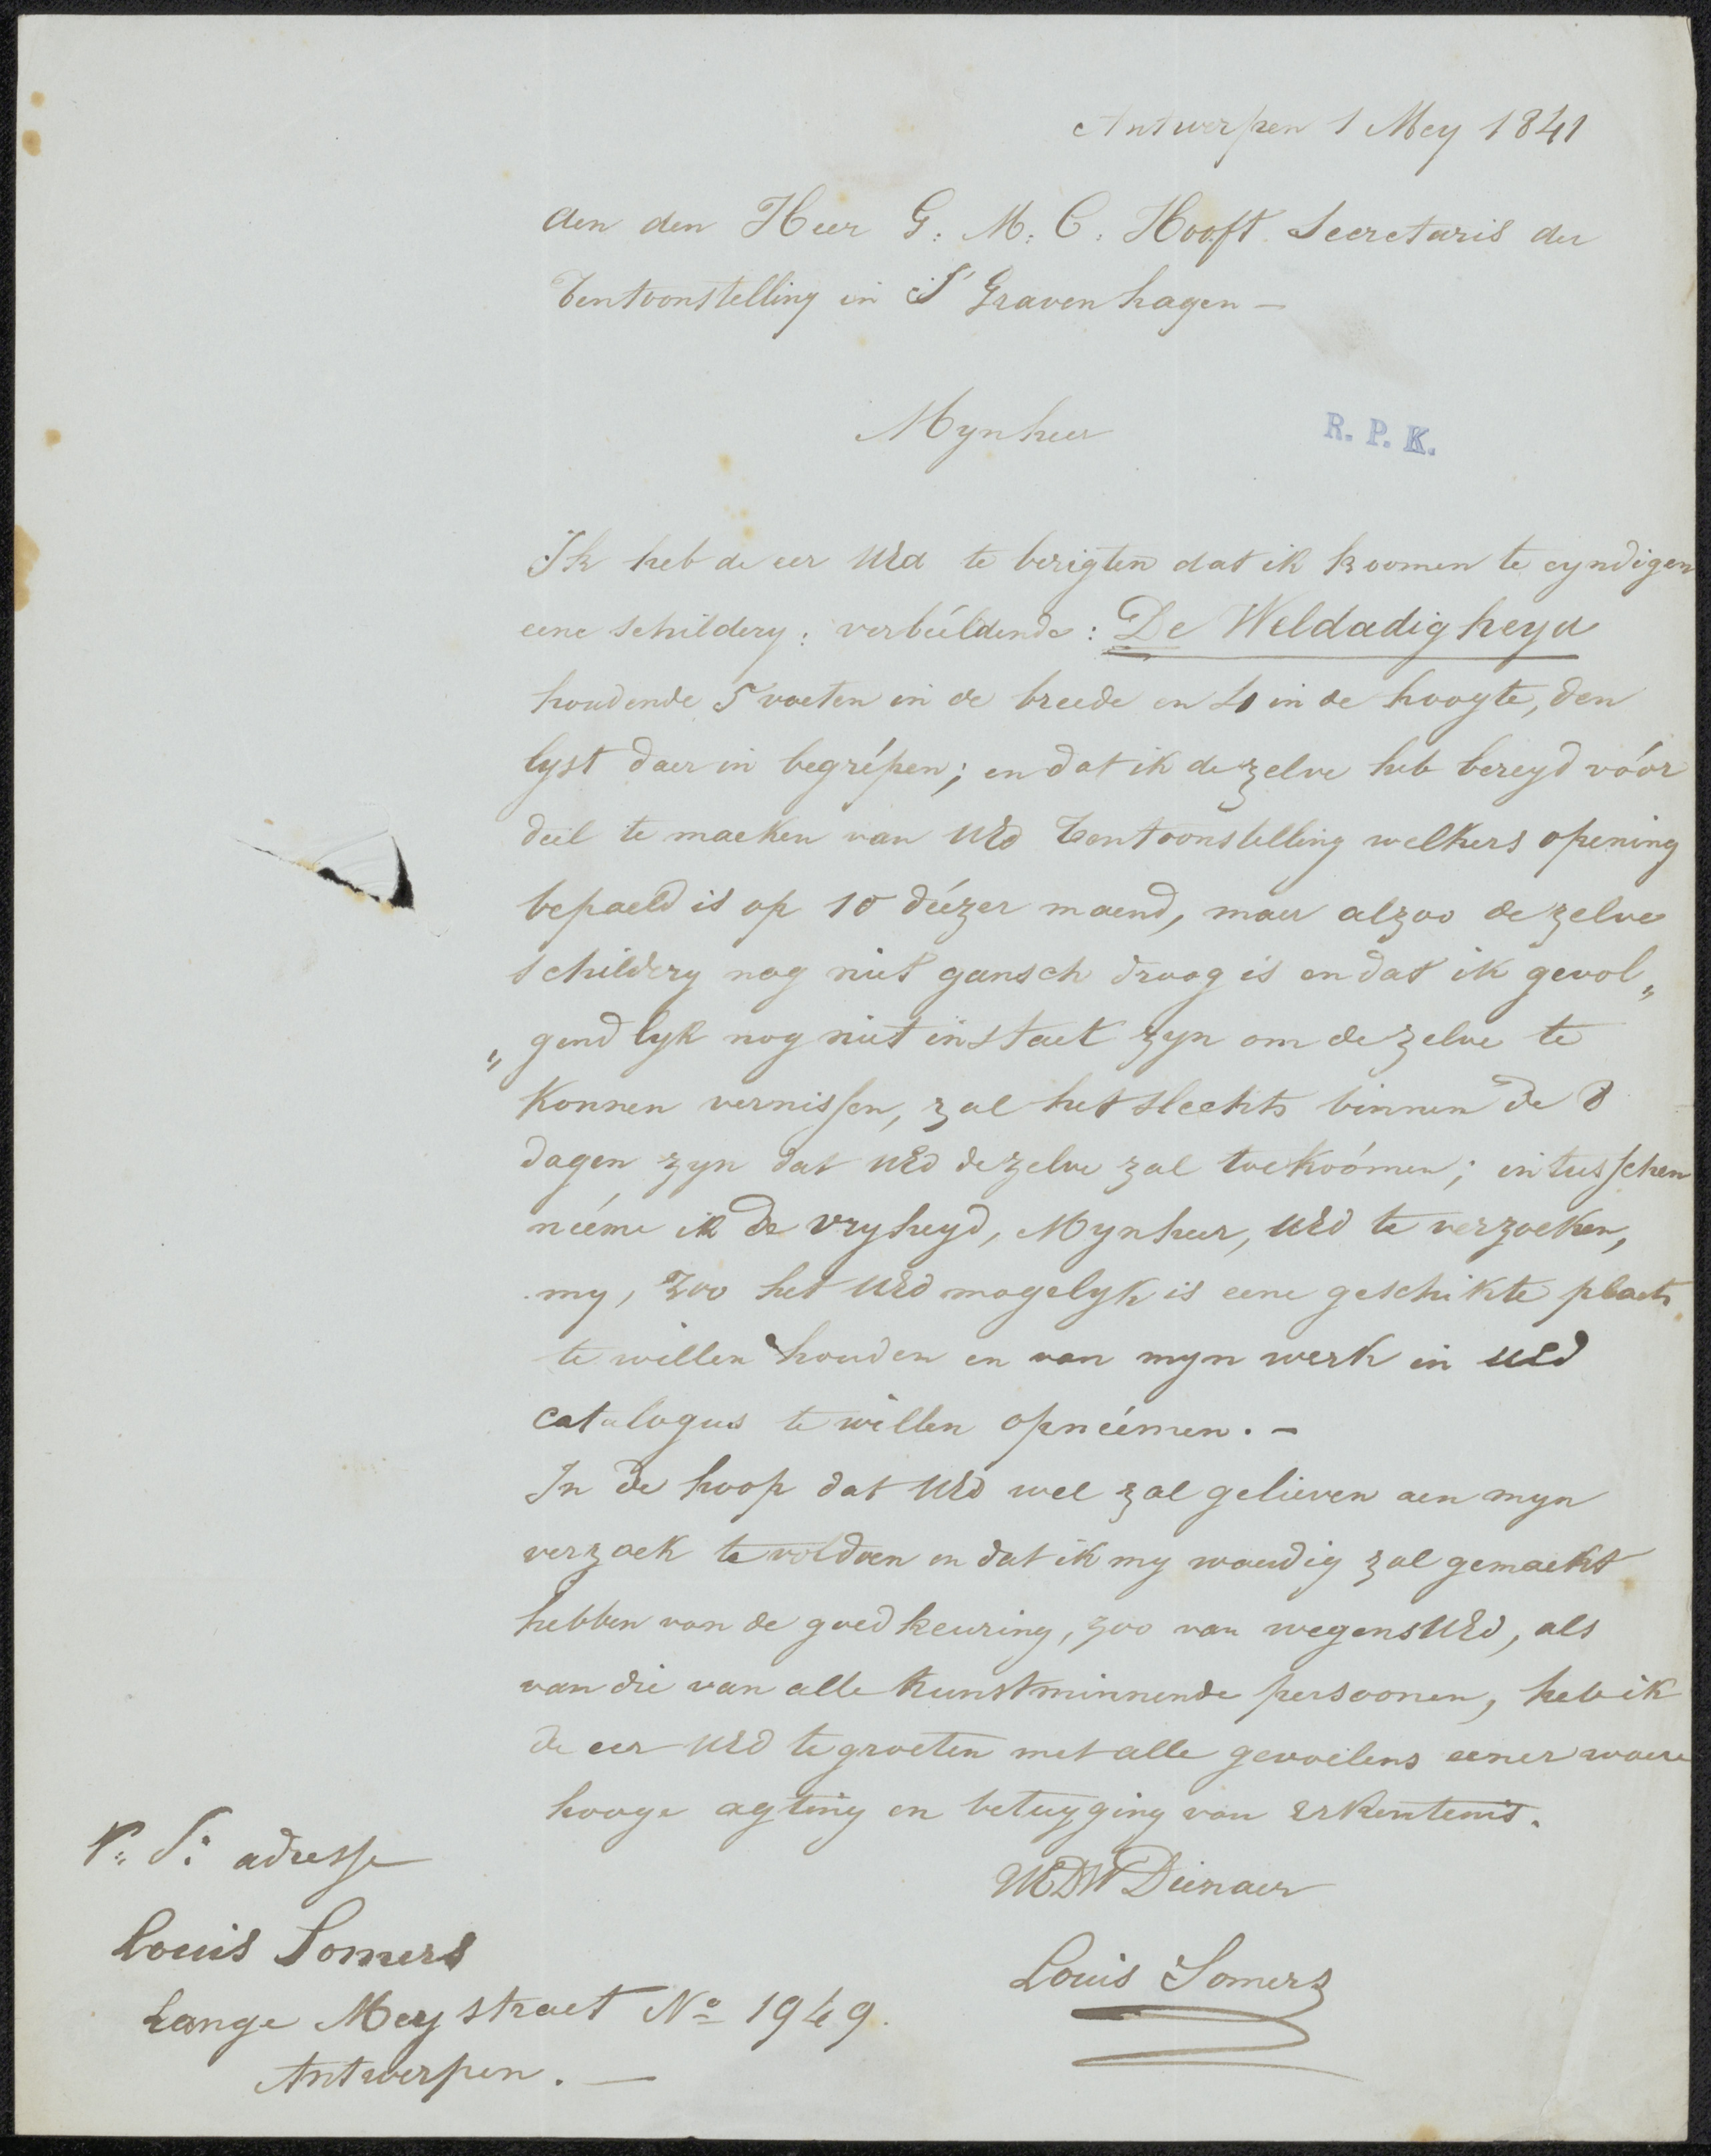 Antwerpen 1 Mey 1841
Aen den Heer G: M: C: Hooft Secretaris der
Tentoonstelling in S' Gravenhagen –
Mynheer
R. P. K.
Ik heb de eer UEd te berigten dat ik koomen te eyndigen
eene schildery: verbéeldende: De Weldadigheyd
houdende 5 voeten in de breede en 4 in de hoogte, den
lyst daer in begrépen; en dat ik de zelve heb bereyd vóór
deel te maeken van UEd Tentoonstelling welkers opening
bepaeld is op 10 déézer maend, maer alzoo de zelve
schildery nog niet gansch droog is en dat ik gevol„
„gendlyk nog niet in staet zyn om de zelve te
konnen vernissen, zal het slechts binnen de 8
dagen zyn dat UEd de zelve zal toekoómen; intusschen
nééme ik de vryheyd, Mynheer, UEd te verzoeken,
my, zoo het UEd mogelyk is eene geschikte plaets
te willen houden en van myn werk in UEd
catalogus te willen opnéémen. –
In de hoop dat UEd wel zal gelieven aen myn
verzoek te voldoen en dat ik my waerdig zal gemaekt
hebben van de goedkeuring, zoo van wegens UEd, als
van die van alle kunstminnende persoonen, heb ik
de eer UEd te groeten met alle gevoelens eener waere
hooge agting en betuyging van erkentenis.
UEDW Dienaer
Louis Somers
P: S: adresse
Louis Somers
Lange Mey straet No 1949.
Antwerpen. –